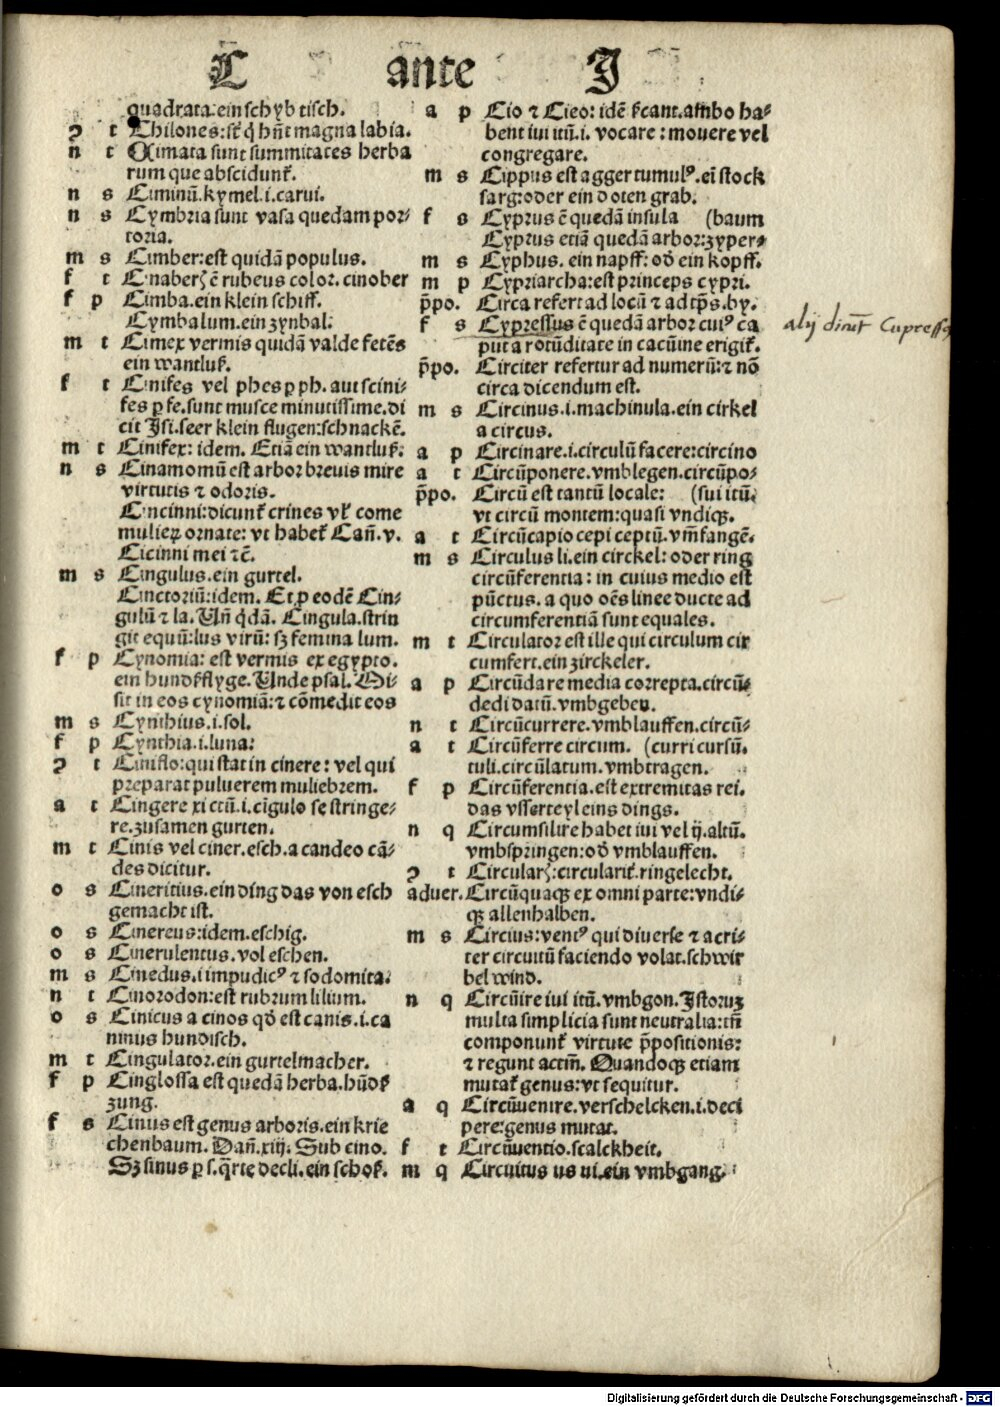 C ante J
quadrata: ein schyb tisch.
ɂ t Chilones: sūt q̄ hn̄t magna labia.
n t Cimata sunt summitates herba
rum que abscidunt᷑.
n s Ciminū. kymel. i. carui.
n s Cymbria sunt vasa quedam por⸗
toria.
m s Cimber: est quidā populus.
f t Cinaberꝭ ē rubeus color. cinober
f p Cimba. ein klein schiff.
Cymbalum. ein zynbal:
m t Cimex vermis quidā valde fetēs
ein wantluß.
f t Cinifes vel phes ꝑ ph. aut scini⸗
fes ꝑ fe. sunt musce minutissime. di
cit Isi. seer klein flugen: schnackē.
m t Cinifex: idem. Etiā ein wantluß:
n s Cinamomū est arbor breuis mire
virtutis ⁊ odoris.
Cincinni: dicunt᷑ crines vl᷑ come
mulieꝝ ornate: vt habet᷑ Can̄. v.
Cicinni mei ⁊c̄.
m s Cingulus. ein gurtel.
Cinctoriū: idem. Et ꝑ eodē Cin⸗
gulū ⁊ la. Un̄ q̄dā. Cingula. strin
git equū: lus virū: sꝫ femina lum.
f p Cynomia: est vermis ex egypto.
ein hundßflyge. Unde psal. Mi⸗
sit in eos cynomiā: ⁊ cōmedit eos
m s Cynthius. i. sol.
f p Cynthia. i. luna:
ɂ t Ciniflo: qui stat in cinere: vel qui
preparat puluerem muliebrem.
a t Cingere xi ctū. i. cīgulo se stringe⸗
re. zusamen gurten.
m t Cinis vel ciner. esch. a candeo cā⸗
des dicitur.
o s Cineritius. ein ding das von esch
gemacht ist.
o s Cinereus: idem. eschig.
o s Cinerulentus. vol eschen.
m s Cinedus. i impudicꝰ ⁊ sodomita.
n t Cinorodon: est rubrum lilium.
o s Cinicus a cinos qd̄ est canis. i. ca
ninus hundisch.
m t Cingulator. ein gurtelmacher.
f p Cinglossa est quedā herba. hūdß
zung.
f s Cinus est genus arboris. ein krie
chenbaum. Dan̄. xiij. Sub cino.
Sꝫ sinus ꝑ s. q̄rte decli. ein schoß.
a p Cio ⁊ Cieo: idē s̄cant. ambo ha⸗
bent iui itū. i. vocare: mouere vel
congregare.
m s Cippus est agger tumulꝰ. eī stock
sarg: oder ein doten grab.
f s Cyprus ē quedā insula (baum
Cyprus etiā quedā arbor: zyper⸗
m s Cyphus. ein napff: od̄ ein kopff.
m p Cypriarcha: est princeps cypri.
p̄po. Circa refert ad locū ⁊ ad tp̄s. hy.
f s Cypressus ē quedā arbor cuiꝰ ca
put a rotūditate in cacūine erigit᷑.
p̄po. Circiter refertur ad numerū: ⁊ nō
circa dicendum est.
m s Circinus. i. machinula. ein cirkel
a circus.
a p Circinare. i. circulū facere: circino
a t Circūponere. vmblegen. circūpo⸗
p̄po. Circū est tantū locale: (sui itū.
vt circū montem: quasi vndiqꝫ.
a t Circūcapio cepi ceptū. vm̄fangē.
m s Circulus li. ein circkel: oder ring
circūferentia: in cuius medio est
pūctus. a quo oēs linee ducte ad
circumferentiā sunt equales.
m t Circulator est ille qui circulum cir
cumfert. ein zirckeler.
a p Circūdare media correpta. circū⸗
dedi datū. vmbgeben.
n t Circūcurrere. vmblauffen. circū⸗
a t Circūferre circum. (curri cursū.
tuli. circūlatum. vmbtragen.
f p Circūferentia. est extremitas rei.
das vsserteyl eins dings.
n q Circumsilire habet iui vel ij. altū.
vmbspringen: od̄ vmblauffen.
ɂ t Circularꝭ: circularit᷑. ringelecht.
aduer. Circūquaqꝫ ex omni parte: vndi⸗
qꝫ allenhalben.
m s Circius: ventꝰ qui diuerse ⁊ acri⸗
ter circuitū faciendo volat. schwir
bel wind.
n q Circūire iui itū. vmbgon. Istoruꝫ
multa simplicia sunt neutralia: tn̄
componunt᷑ virtute p̄positionis:
⁊ regunt actm̄. Quandoqꝫ etiam
mutat᷑ genus: vt sequitur.
a q Circūuenire. verschelcken. i. deci
pere: genus mutat.
f t Circūuentio. scalckheit.
m q Circuitus us ui. ein vmbgang.
alij dicūt Cupressꝰ
Digitalisierung gefördert durch die Deutsche Forschungsgemeinschaft - DFG